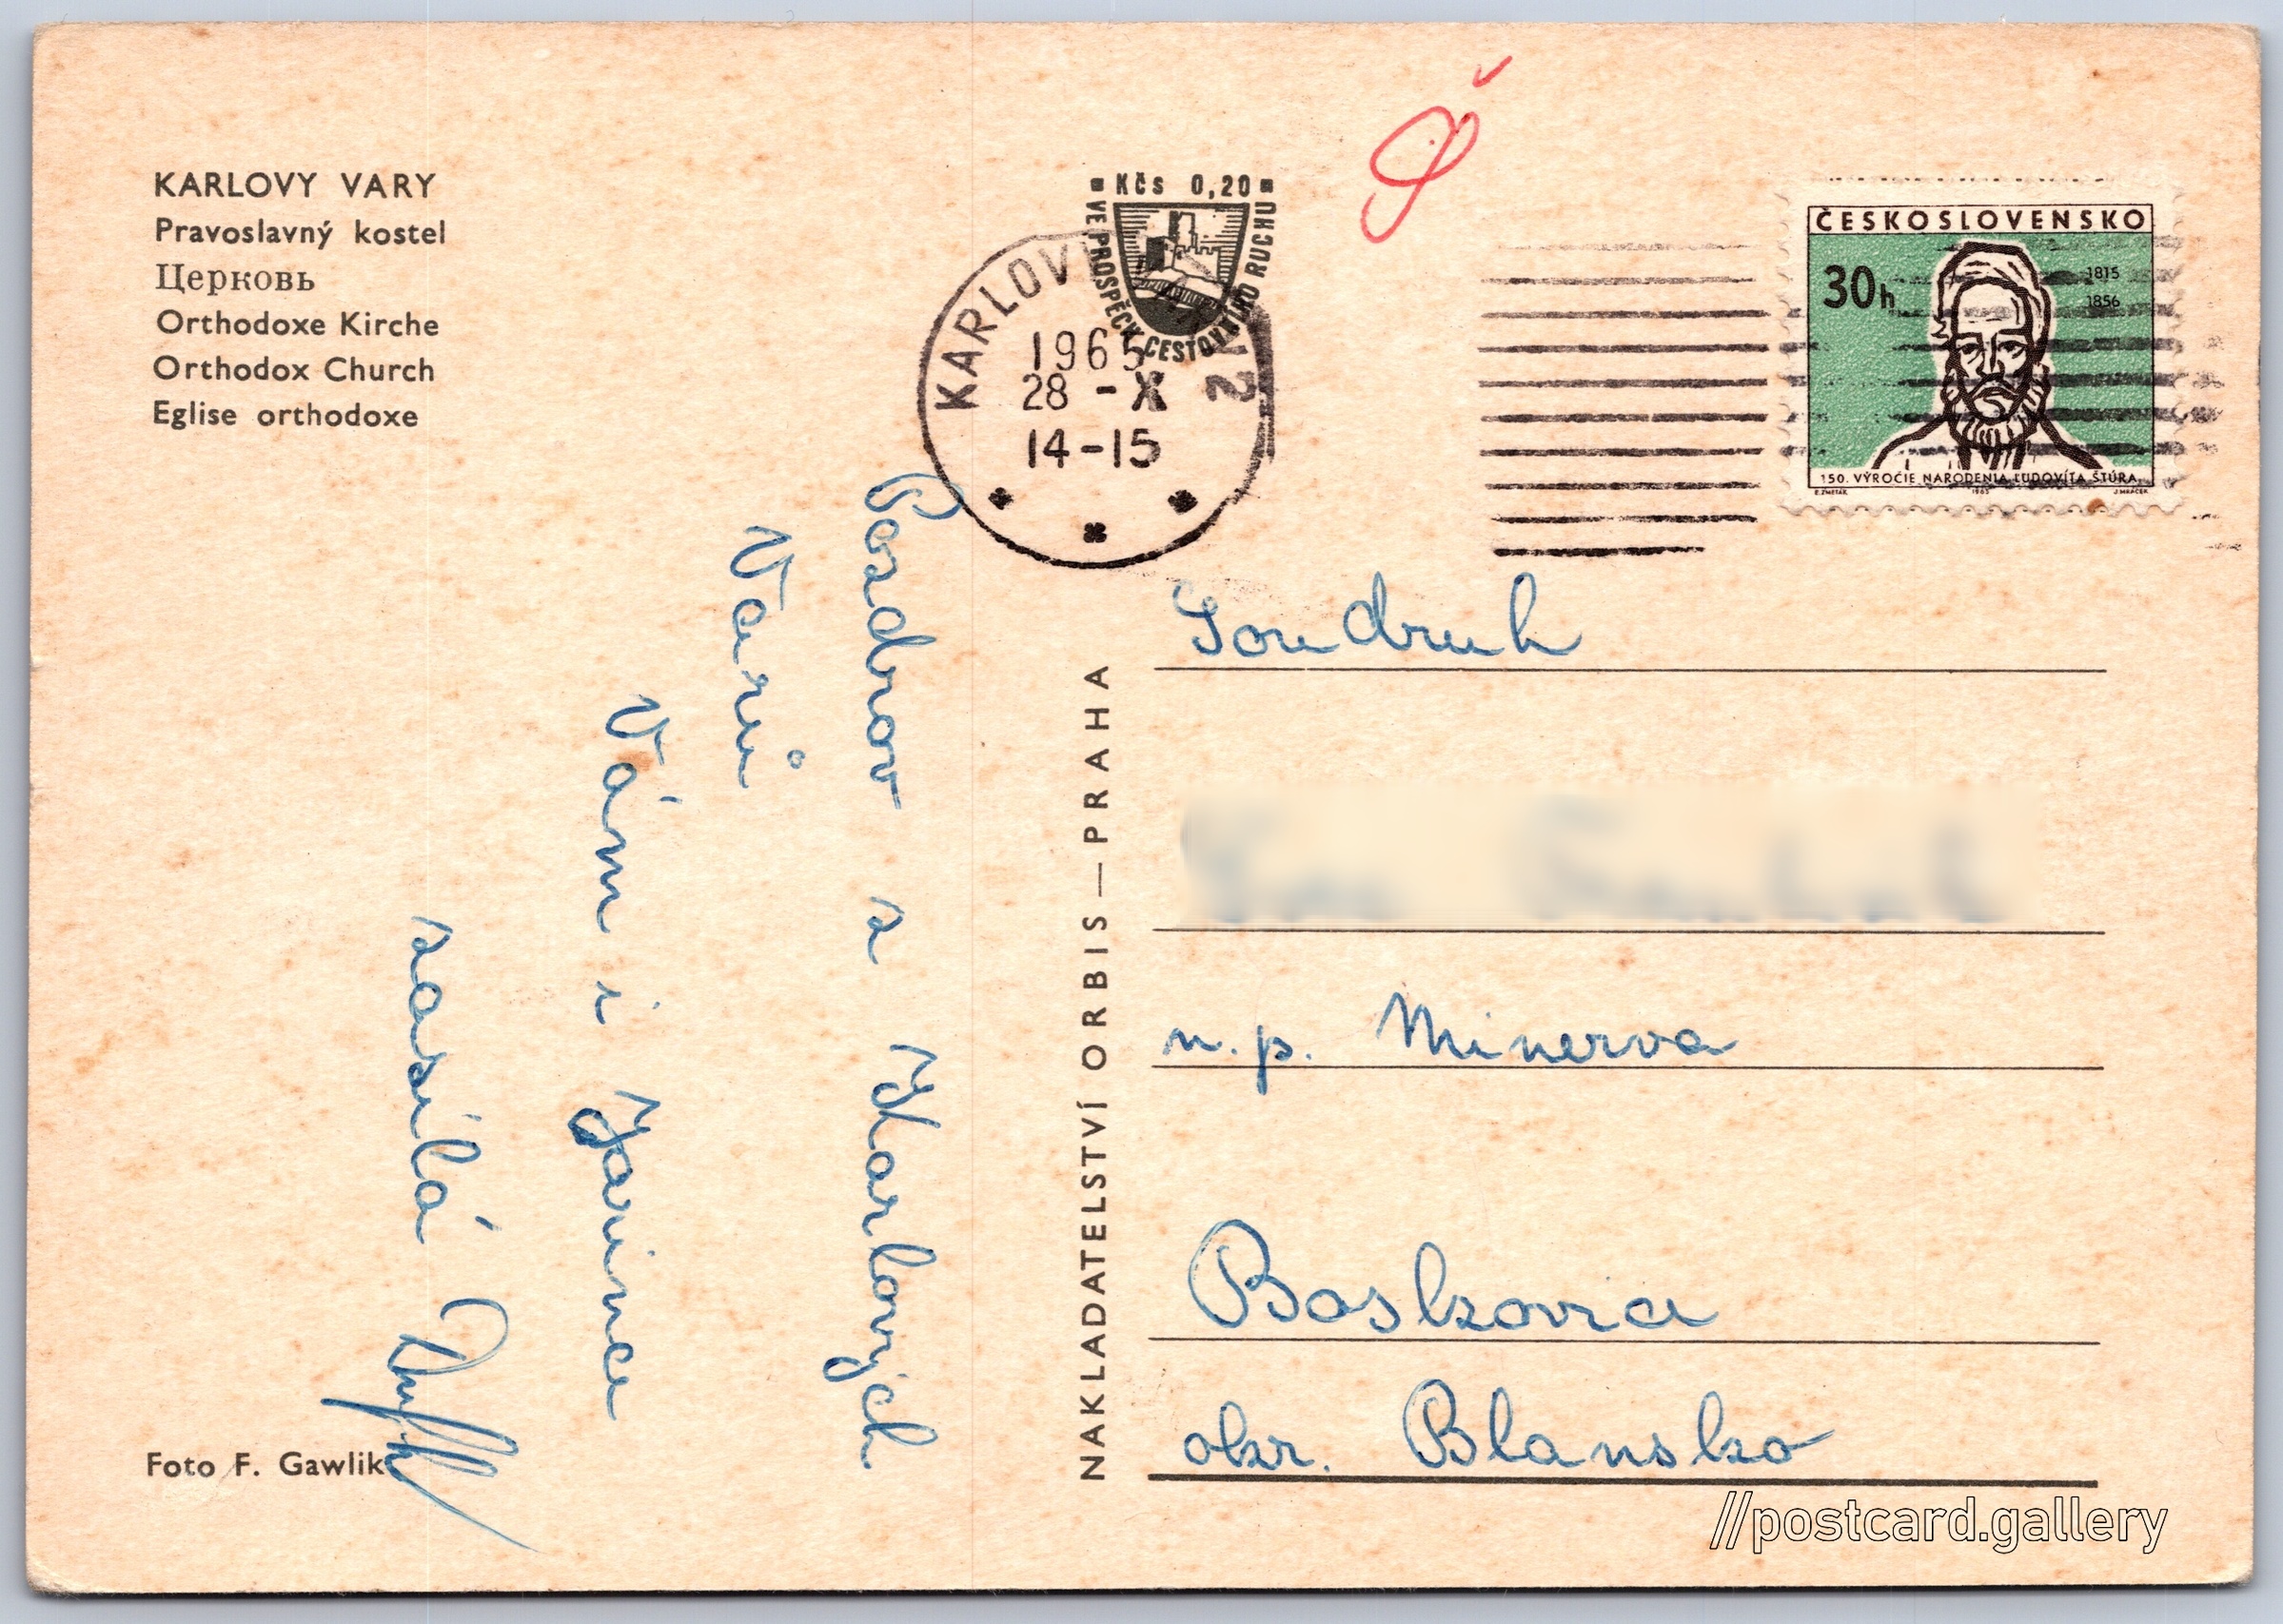 KARLOVY VARY
Pravoslavný kostel
Церковь
Orthodoxe Kirche
Orthodox Church
Eglise orthodoxe
Foto F. Gawlik
Pozdrav z Karlových
Varů
Vám i Jarince
zasílá
NAKLADATELSTVÍ ORBIS — PRAHA
Kčs 0,20
VE PROSPĚCH CESTOVNÍHO RUCHU
KARLOVY VARY 2
1965
28 -X
14-15
ČESKOSLOVENSKO
30h
1815
1856
150. VÝROČIE NARODENIA ĽUDOVÍTA ŠTÚRA
E.ZMETÁK 1965 J.MRÁČEK
Soudruh
n.p. Minerva
Boskovice
okr. Blansko
//postcard.gallery